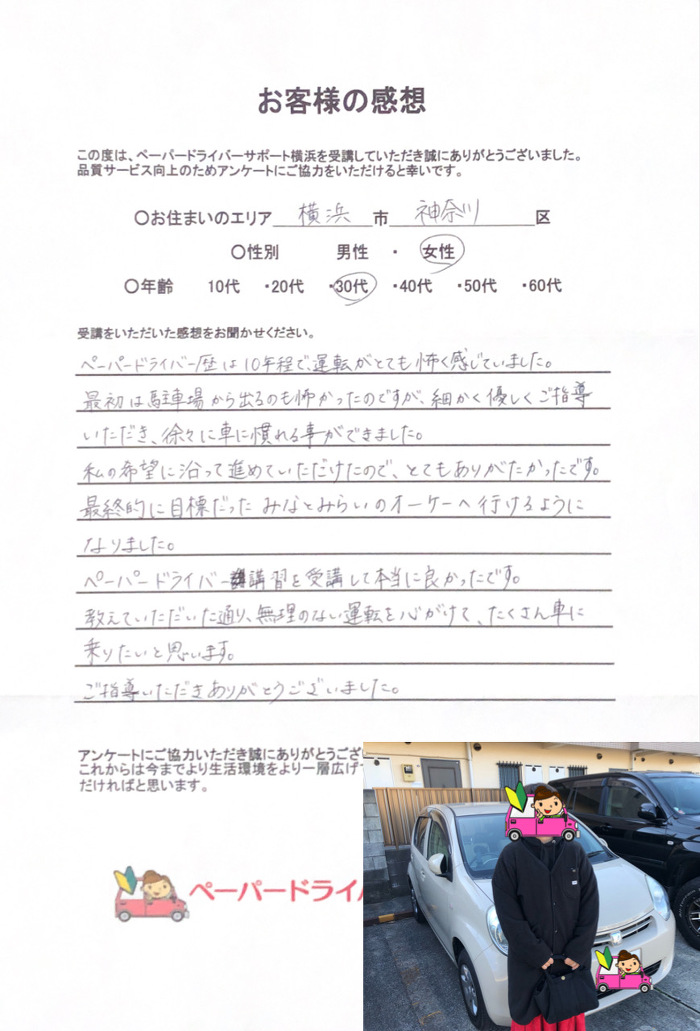 お客様の感想
この度は、ペーパードライバーサポート横浜を受講していただき誠にありがとうございました。
品質サービス向上のためアンケートにご協力をいただけると幸いです。
〇お住まいのエリア 横浜 市 神奈川 区
〇性別 男性 ・ 女性
〇年齢 10代 ・20代 ・30代 ・40代 ・50代 ・60代
受講をいただいた感想をお聞かせください。
ペーパードライバー歴は10年程で、運転がとても怖く感じていました。
最初は駐車場から出るのも怖かったのですが、細かく優しくご指導
いただき、徐々に車に慣れる事ができました。
私の希望に沿って進めていただけたので、とてもありがたかったです。
最終的に目標だったみなとみらいのオーケーへ行けるように
なりました。
ペーパードライバー講習を受講して本当に良かったです。
教えていただいた通り、無理のない運転を心がけて、たくさん車に
乗りたいと思います。
ご指導いただきありがとうございました。
アンケートにご協力いただき誠にありがとうござい
これからは今までより生活環境をより一層広げ
だければと思います。
ペーパードライ